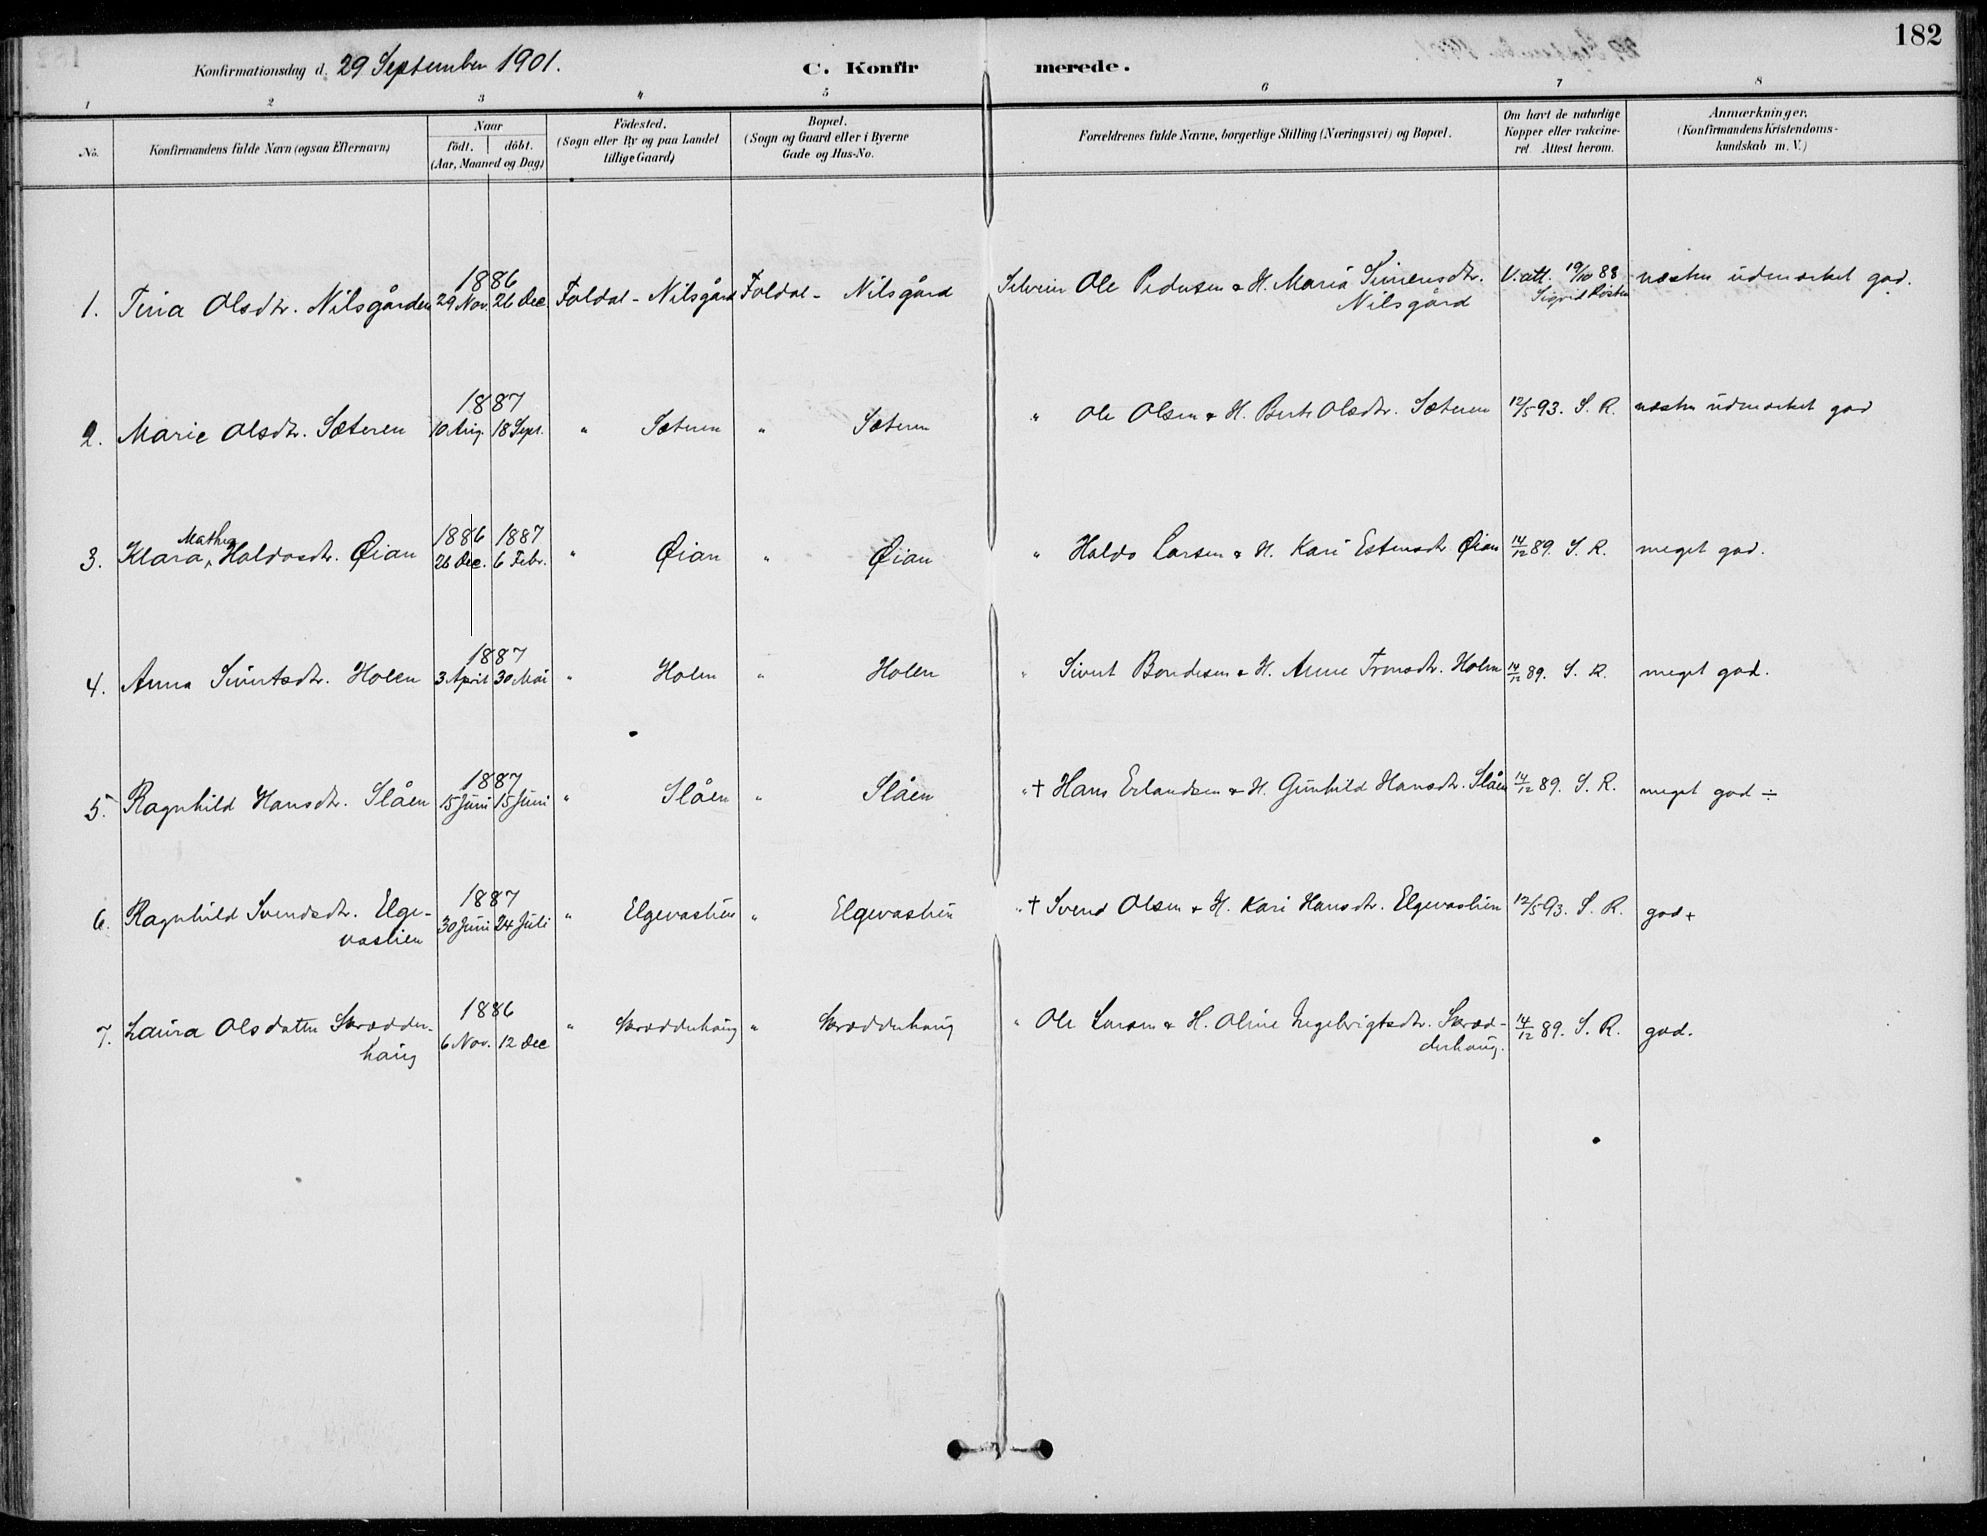 182
Konfirmationsdag d. 29 September 1901.
C. Konfirmerede.
1 2 3 4 5 6 7 8
No.
Konfirmandens fulde Navn (ogsaa Efternavn)
Naar
födt. döbt.
(Aar, Maaned og Dag)
Födested.
(Sogn eller By og paa Landet
tillige Gaard)
Bopæl.
(Sogn og Gaard eller i Byerne
Gade og Hus-No.
Forældrenes fulde Navne, borgerlige Stilling (Næringsvei) og Bopæl.
Om havt de naturlige
Kopper eller vakcine-
ret. Attest herom.
Anmærkninger.
(Konfirmandens Kristendoms-
kundskab m. V.)
1886
1. Tina Olsdtr. Nilsgården 29 Nov. 26 Dec Foldal - Nilsgård Foldal - Nilsgård Selveier Ole Pedersen & H. Maria Simensdtr. V. att. 19/10 88 næsten udmærket god.
Nilsgård Sigrid Røsten
1887
2. Marie Olsdtr. Sæteren 10 Aug. 18 Sept. " Sæteren " Sæteren " Ole Olsen & H. Berte Olsdtr. Sæteren 12/5 93. S. R. næsten udmærket god
Mathea 1886 1887
3. Klara, Haldosdtr. Øian 26 Dec. 6 Febr. " Øian " Øian " Haldo Larsen & H. Kari Estensdtr Øian 14/12 89. S. R. meget god.
1887
4. Anna Sivertsdtr. Holen 3 April 30 Mai " Holen " Holen " Sivert Bondesen & H. Anne Tronsdtr. Holen 14/12 89. S. R. meget god.
1887
5. Ragnhild Hansdtr. Slåen 15 Juni 15 Juni " Slåen " Slåen " † Hans Erlandsen & H. Gunhild Hansdtr. Slåen 14/12 89. S. R. meget god ÷
1887
6. Ragnhild Svendsdtr. Elge- 30 Juni 24 Juli " Elgevaslien " Elgevaslien " † Svend Olsen & H. Kari Hansdtr. Elgevaslien 12/5 93. S. R. god +
vaslien
1886
7. Laura Olsdatter Skrædder- 6 Nov. 12 Dec " Skrædderhaug " Skrædderhaug " Ole Larsen & H. Oline Ingebrigtsdtr. Skræd- 14/12 89. S. R. god.
haug derhaug.